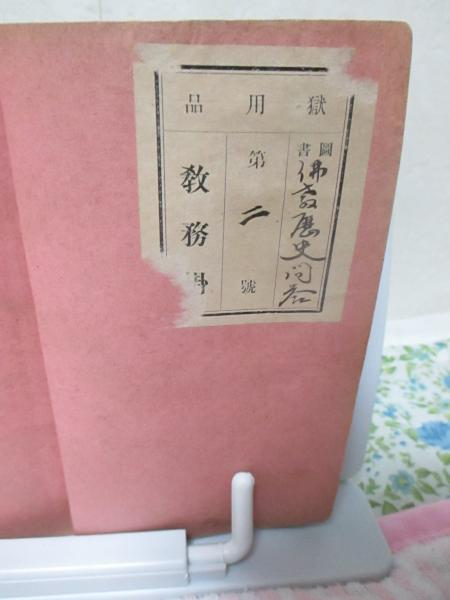 獄用品
圖書
佛教歷史問答
第二號
教務掛